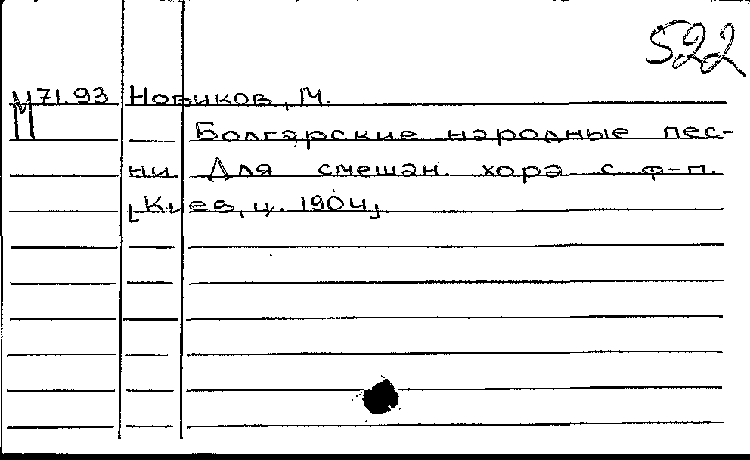 522
М 71.93 Новиков, М.
Болгарские народные пес-
ни. Для смешан. хора с ф-п.
[Киев, ц. 1904]